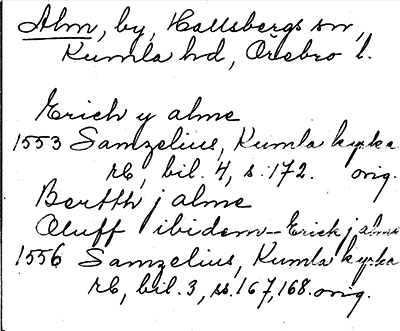 Alm, by, Hallsbergs sn,
Kumla hd, Örebro l.
Erich y alme
1553 Samzelius, Kumla kyrka
rb, bil. 4, s. 172. orig.
Bertth j alme
Oluff ibidem - Erick j alme
1556 Samzelius, Kumla kyrka
rb, bil. 3, ss. 167, 168. orig.